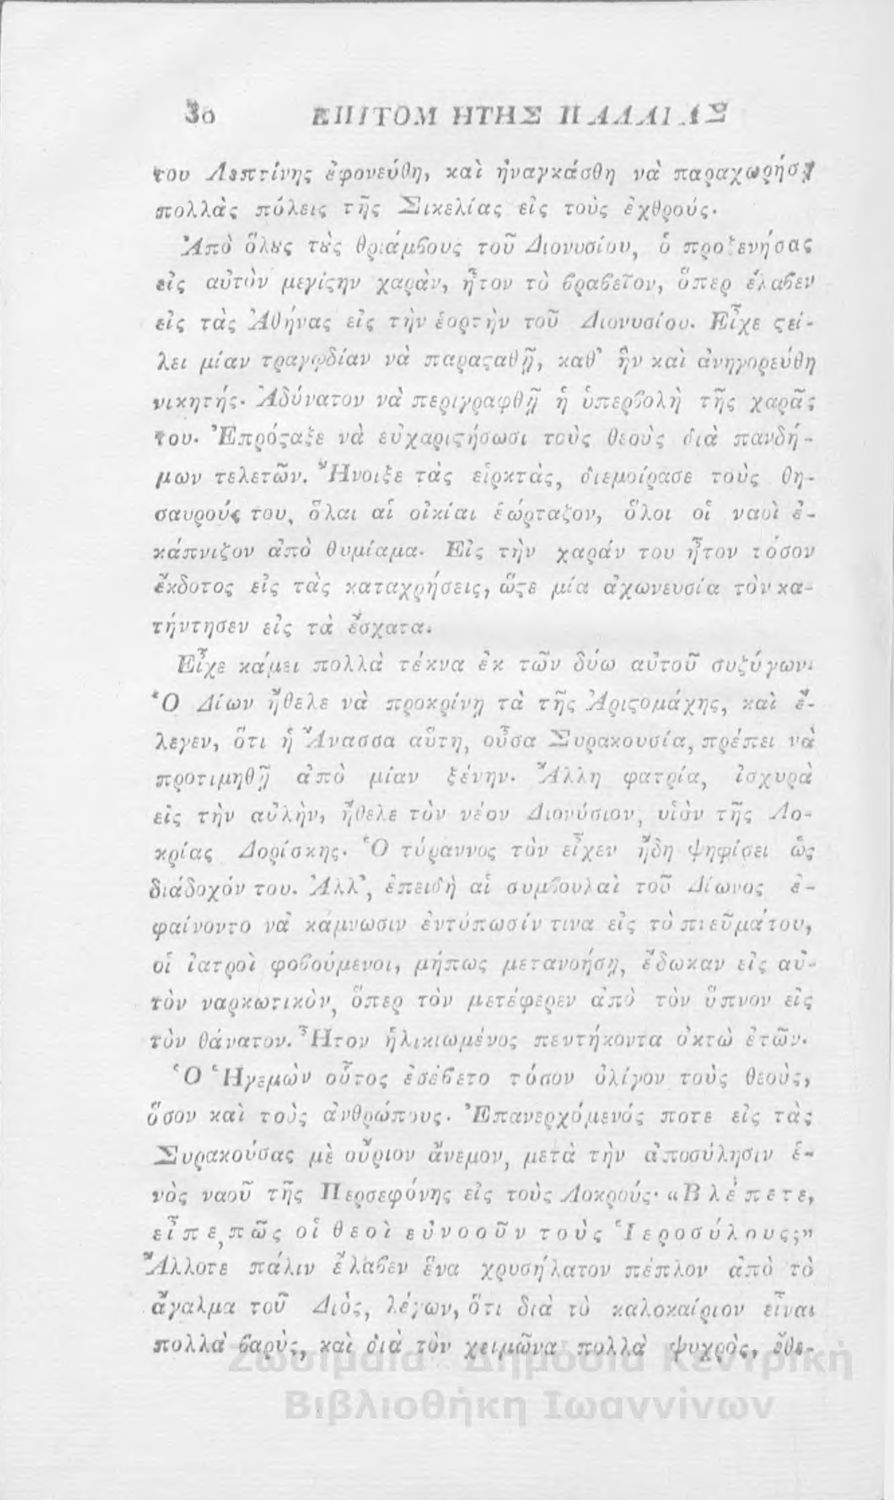 30 ΕΠΙΤΟΜΗ ΤΗΣ ΠΑΛΑΙΑΣ
του Λεπτίνης ἐφονεύθη, καὶ ἠναγκάσθη νὰ παραχωρήσῃ
πολλὰς πόλεις τῆς Σικελίας εἰς τοὺς ἐχθρούς·
Ἀπὸ ὅλȣς τȣ̀ς θριάμβους τοῦ Διονυσίου, ὁ προξενήσας
εἰς αὐτὸν μεγίϛην χαρὰν, ἦτον τὸ βραβεῖον, ὅπερ ἔλαβεν
εἰς τὰς Ἀθήνας εἰς τὴν ἑορτὴν τοῦ Διονυσίου. Εἶχε ϛεί-
λει μίαν τραγῳδίαν νὰ παραϛαθῇ, καθ' ἣν καὶ ἀνηγορεύθη
νικητής· Ἀδύνατον νὰ περιγραφθῇ ἡ ὑπερβολὴ τῆς χαρᾶς
του· Ἐπρόϛαξε νὰ εὐχαριϛήσωσι τοὺς θεοὺς διὰ πανδή-
μων τελετῶν. Ἤνοιξε τὰς εἱρκτὰς, διεμοίρασε τοὺς θη-
σαυρούς του, ὅλαι αἱ οἰκίαι ἑώρταζον, ὅλοι οἱ ναοὶ ἐ-
κάπνιζον ἀπὸ θυμίαμα· Εἰς τὴν χαράν του ἦτον τόσον
ἔκδοτος εἰς τὰς καταχρήσεις, ὥϛε μία ἀχωνευσία τὸν κα-
τήντησεν εἰς τὰ ἔσχατα.
Εἶχε κάμει πολλὰ τέκνα ἐκ τῶν δύω αὐτοῦ συζύγων·
Ὁ Δίων ἤθελε νὰ προκρίνῃ τὰ τῆς Ἀριϛομάχης, καὶ ἔ-
λεγεν, ὅτι ἡ Ἄνασσα αὕτη, οὖσα Συρακουσία, πρέπει νὰ
προτιμηθῇ ἀπὸ μίαν ξένην· Ἄλλη φατρία, ἰσχυρὰ
εἰς τὴν αὐλὴν, ἤθελε τὸν νέον Διονύσιον, υἱὸν τῆς Λο-
κρίας Δορίσκης· Ὁ τύραννος τὸν εἶχεν ἤδη ψηφίσει ὡς
διάδοχόν του. Ἀλλ', ἐπειδὴ αἱ συμβουλαὶ τοῦ Δίωνος ἐ-
φαίνοντο νὰ κάμνωσιν ἐντύπωσίν τινα εἰς τὸ πνεῦμάτου,
οἱ ἰατροὶ φοβούμενοι, μήπως μετανοήσῃ, ἔδωκαν εἰς αὐ-
τὸν ναρκωτικὸν, ὅπερ τὸν μετέφερεν ἀπὸ τὸν ὕπνον εἰς
τὸν θάνατον. Ἦτον ἡλικιωμένος πεντήκοντα ὀκτὼ ἐτῶν·
Ὁ Ἡγεμὼν οὗτος ἐσέβετο τόσον ὀλίγον τοὺς θεοὺς,
ὅσον καὶ τοὺς ἀνθρώπους. Ἐπανερχόμενός ποτε εἰς τὰς
Συρακούσας μὲ οὔριον ἄνεμον, μετὰ τὴν ἀποσύλησιν ἑ-
νὸς ναοῦ τῆς Περσεφόνης εἰς τοὺς Λοκρούς· «Βλέπετε,
εἶπε, πῶς οἱ θεοὶ εὐνοοῦν τοὺς Ἱεροσύλους;»
Ἄλλοτε πάλιν ἔλαβεν ἕνα χρυσήλατον πέπλον ἀπὸ τὸ
ἄγαλμα τοῦ Διὸς, λέγων, ὅτι διὰ τὸ καλοκαίριον εἶναι
πολλὰ βαρὺς, καὶ διὰ τὸν χειμῶνα πολλὰ ψυχρὸς, ἔθε-
Ζωσιμαία Δημόσια Κεντρική
Βιβλιοθήκη Ιωαννίνων